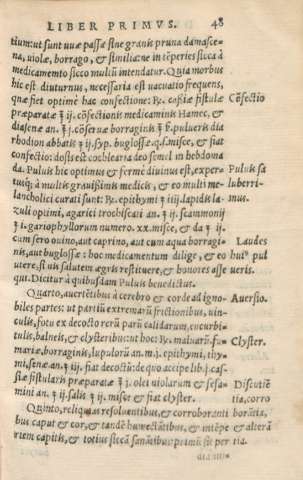 LIBER PRIMVS. 48
tium: ut sunt uuæ passæ sine granis pruna damasce-
na, uiolæ, borrago, & similia: ne in tēperies sicca à
medicamēto sicco multū intendatur. Quia morbus
hic est diuturnus, necessaria est uacuatio frequens,
quæ fiet optime hac confectione: ℞. casiæ fistulæ Cōfectio
præparatæ ℥ ij. cōfectionis medicaminis Hamec, &
diasenæ an. ℥ j. cōseruæ borraginis ℥ ß. pulueris dia
rhodion abbatis ij. syp. buglossæ. q. s. misce, & fiat
confectio: dosis est cochlearia deo semel in hebdoma
da. Puluis hic optimus & ferme diuinus est, exper- Puluis sa
tusq; à multis grauissimis medicis, & eo multi me- luberri-
lancholici curati sunt: ℞. epithymi ℥ iiij. lapidis la- mus.
zuli optimi, agarici trochiscati an. ℥ ij. scammonij
℥ j. gariophyllorum numero. xx. misce, & da ij.
cum sero ouino, aut caprino, aut cum aqua borragi- Laudes
nis, aut buglossæ: hoc medicamentum dilige, & eo huiꝰ pul
utere, si uis salutem ægris restituere, & honores asse ueris.
qui. Dicitur à quibusdam Puluis benedictus.
Quarto, auertētibus à cerebro & corde ad igno- Auersio.
biles partes: ut partiū extremarū frictionibus, uin-
culis, fotu ex decocto rerū parū calidarum, cucurbi-
tulis, balneis, & clysteribus: ut hoc: ℞. maluarū. fu- Clyster.
mariæ, borraginis, lupulorū an. m. j. epithymi, thy-
mi, senæ an. ℥ iij. fiat decoctū: de quo accipe lib. j. cas-
siæ fistularis præparatæ ℥ j. olei uiolarum & sesa- Discutiē
mini an. ℥ ij. salis ij. misce & fiat clyster. tia, corro
Quinto, reliquas resoluentibus, & corroboranti borātia,
bus caput & cor, & tandē humectātibus, & intēpe & alterā
riem capitis, & totius siccā sanātibus: primū sit per tia.